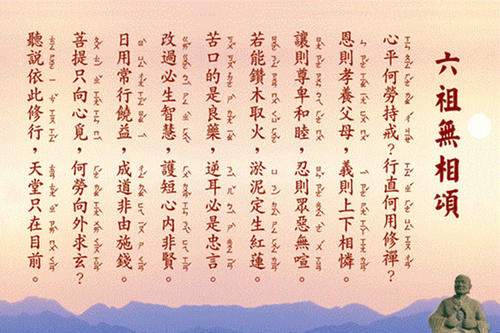 六祖無相頌
心平何勞持戒？行直何用修禪？
恩則孝養父母，義則上下相憐。
讓則尊卑和睦，忍則眾惡無喧。
若能鑽木取火，淤泥定生紅蓮。
苦口的是良藥，逆耳必是忠言。
改過必生智慧，護短心內非賢。
日用常行饒益，成道非由施錢。
菩提只向心覓，何勞向外求玄？
聽說依此修行，天堂只在目前。